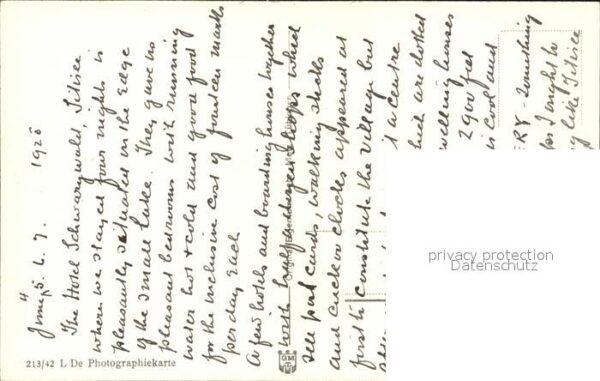 June 5. 6. 7. 1928
The Hotel Schwarzwald, Titisee
where we stayed four nights is
pleasantly situated on the edge
of the small lake. They gave us
pleasant bedrooms with running
water hot & cold and good food
for the inclusive cost of fourteen marks
per day each
A few hotels and boarding houses together
with half a dozen shops which
sell post cards, walking sticks
and cuckoo clocks appeared at
first to constitute the village but
a centre
which are dotted
dwelling houses
2900 feet
is cool and
something
I ought to
like Titisee
213/42 L De Photographiekarte
privacy protection
Datenschutz